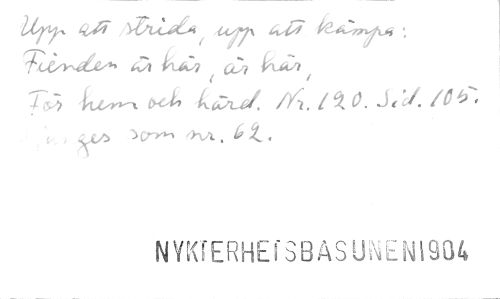 Upp att strida, upp att kämpa:
Fienden är här, är här,
För hem och härd. Nr. 120. Sid. 105.
Sjunges som nr. 62.
NYKTERHETSBASUNEN1904